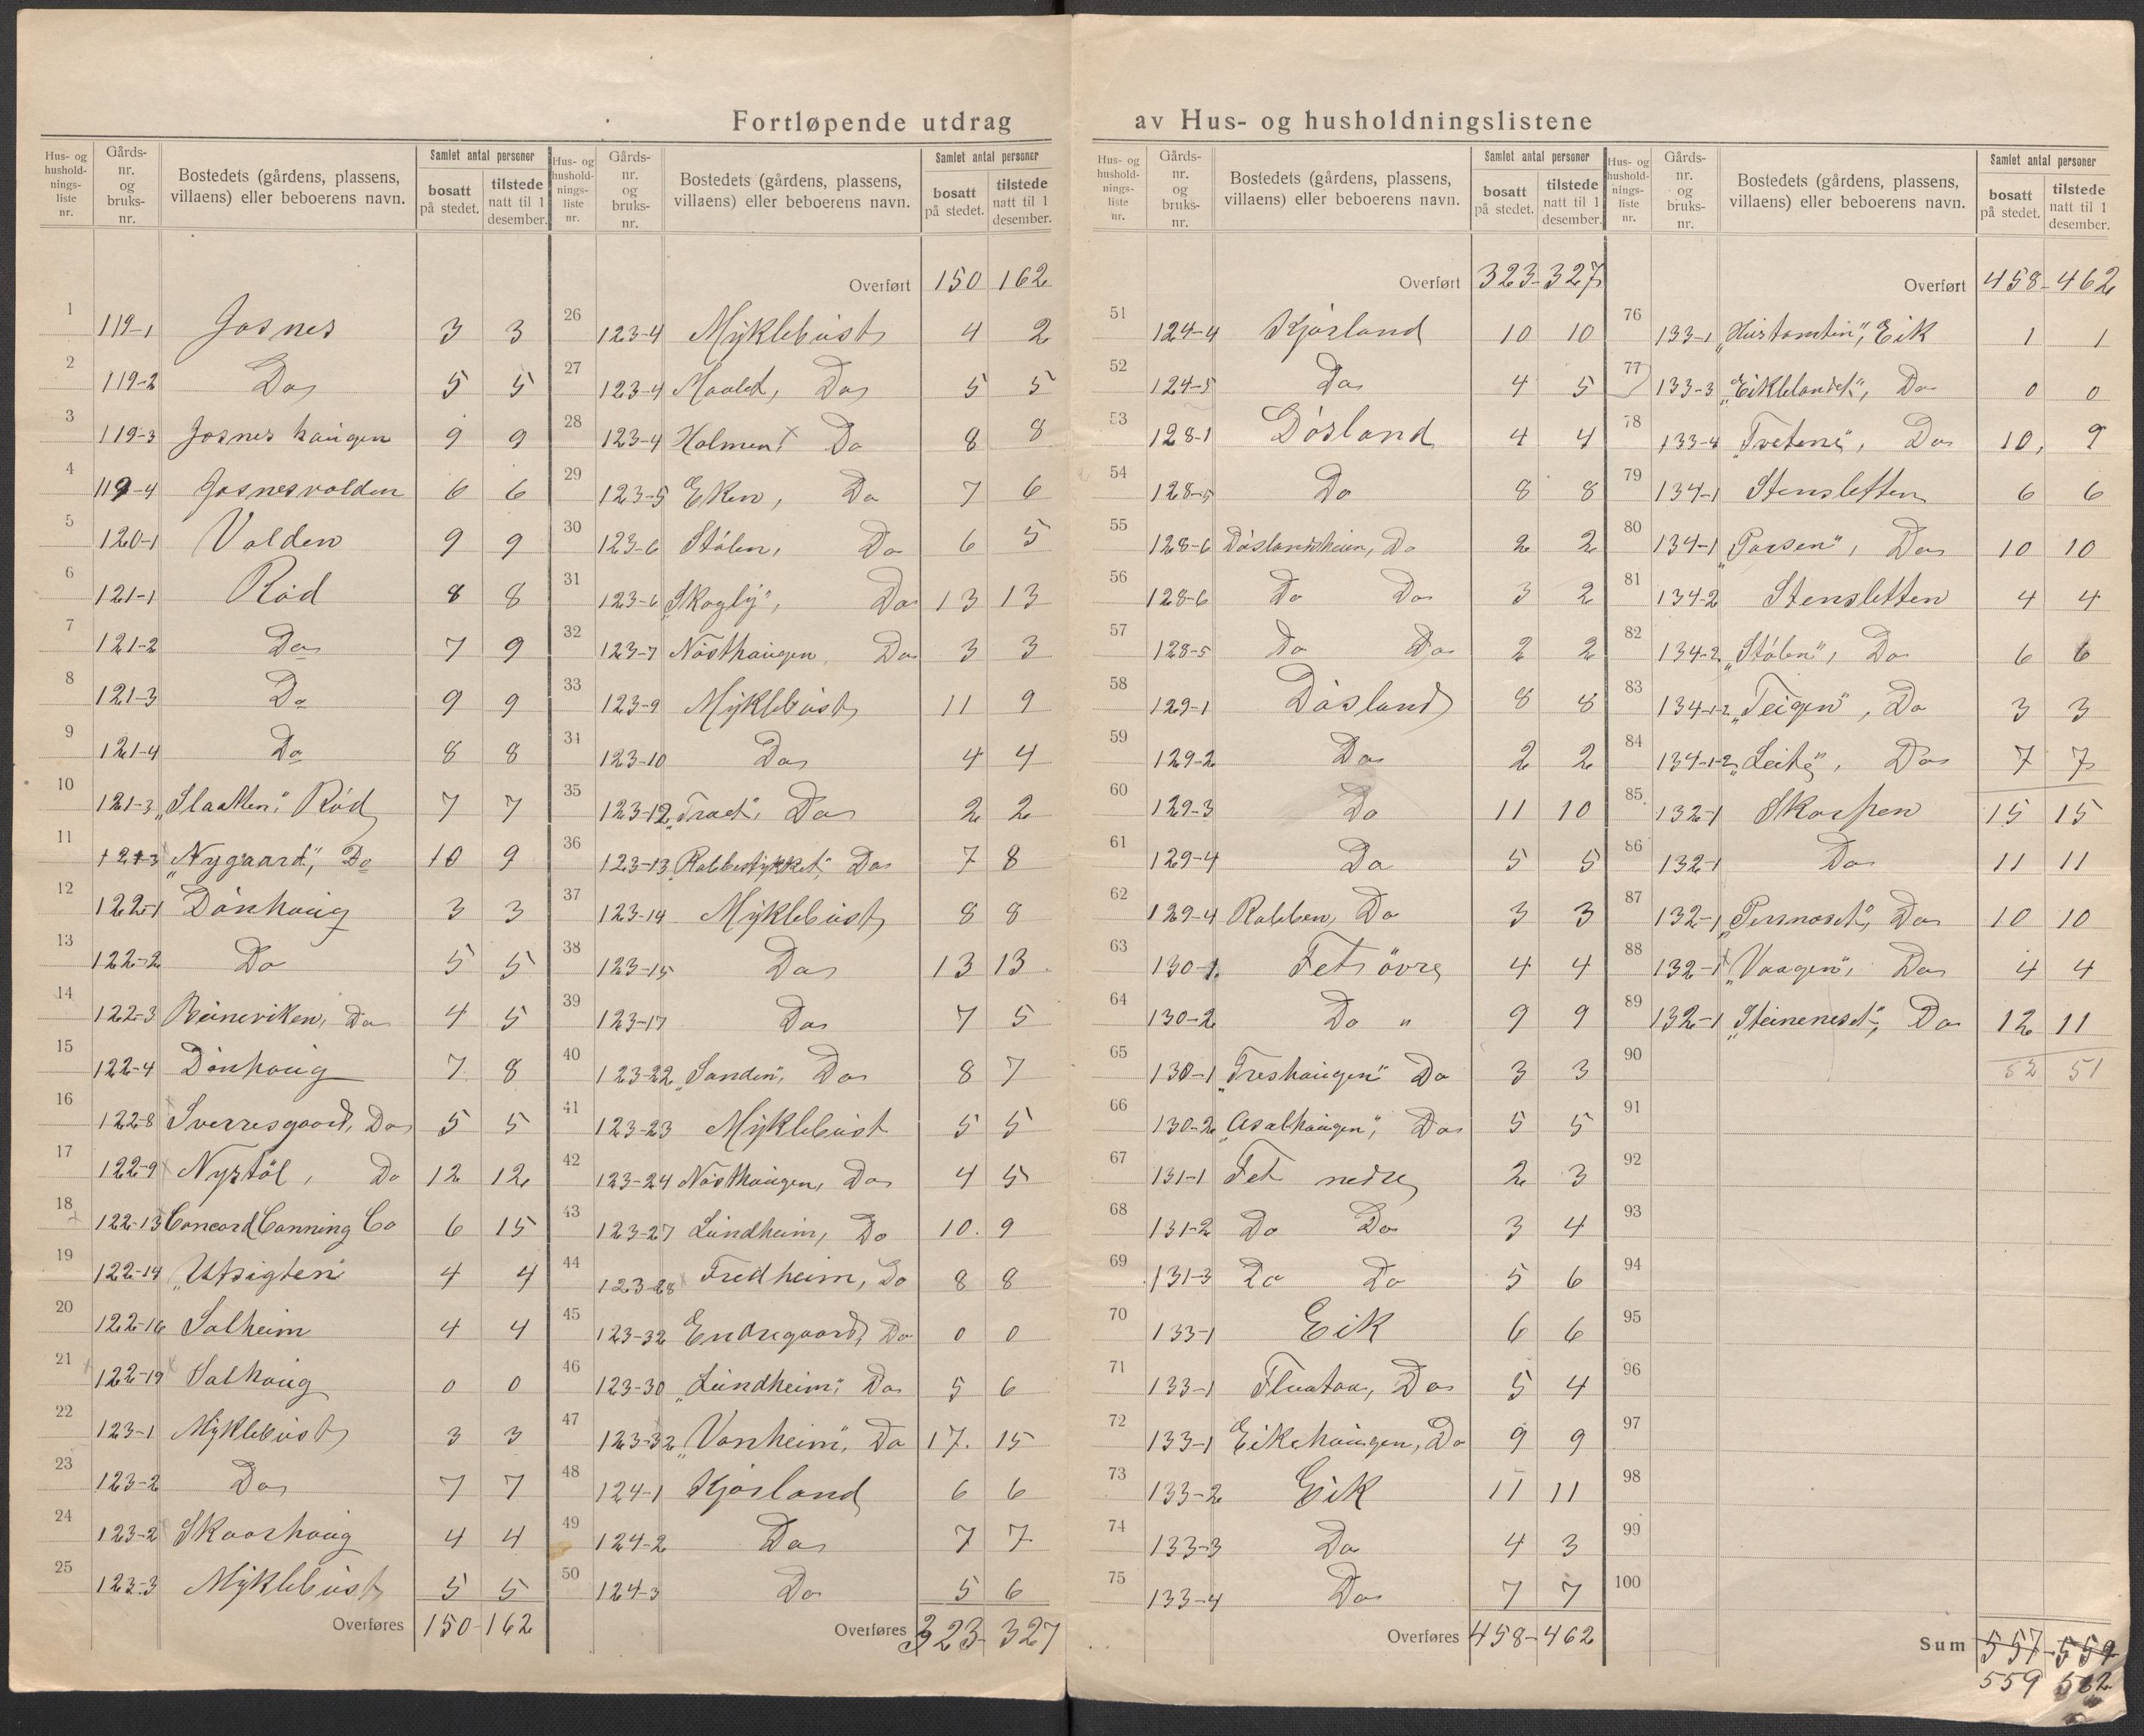 Fortløpende utdrag av Hus- og husholdningslistene
Hus- og hushold-nings-liste nr. | Gårds-nr. og bruks-nr. | Bostedets (gårdens, plassens, villaens) eller beboerens navn. | Samlet antal personer | bosatt på stedet. | tilstede natt til 1 desember.
1 119-1 Josnes 3 3
2 119-2 Do 5 5
3 119-3 Josnes haugen 9 9
4 119-4 Josnesvolden 6 6
5 120-1 Volden 9 9
6 121-1 Rød 8 8
7 121-2 Do 7 9
8 121-3 Do 9 9
9 121-4 Do 8 8
10 121-3 "Slaatten", Rød 7 7
11 121-3 "Nygaard", Do 10 9
12 122-1 Dønhaug 3 3
13 122-2 Do 5 5
14 122-3 Reineviken, Do 4 5
15 122-4 Dønhoug 7 8
16 122-8 Sverresgaard, Do 5 5
17 122-9 Nystøl, Do 12 12
18 122-13 Concord Canning Co 6 15
19 122-14 "Utsigten" 4 4
20 122-16 Solheim 4 4
21 122-19 Solhaug 0 0
22 123-1 Myklebust 3 3
23 123-2 Do 7 7
24 123-2 Skaarhaug 4 4
25 123-3 Myklebust 5 5
Overføres 150-162
Hus- og hushold-nings-liste nr. | Gårds-nr. og bruks-nr. | Bostedets (gårdens, plassens, villaens) eller beboerens navn. | Samlet antal personer | bosatt på stedet. | tilstede natt til 1 desember.
Overført 150 162
26 123-4 Myklebust 4 2
27 123-4 Maalet, Do 5 5
28 123-4 Holmen, Do 8 8
29 123-5 Eken, Do 7 6
30 123-6 Stølen, Do 6 5
31 123-6 "Skogly", Do 13 13
32 123-7 Nøsthaugen, Do 3 3
33 123-9 Myklebust 11 9
34 123-10 Do 4 4
35 123-12 "Træet", Do 2 2
36 123-13 "Rabbestykket", Do 7 8
37 123-14 Myklebust 8 8
38 123-15 Do 13 13
39 123-17 Do 7 5
40 123-22 "Sanden", Do 8 7
41 123-23 Myklebust 5 5
42 123-24 Nøsthaugen, Do 4 5
43 123-27 Lundheim, Do 10 9
44 123-28 Fredheim, Do 8 8
45 123-32 Endregaard, Do 0 0
46 123-30 "Lundheim", Do 5 6
47 123-32 "Vonheim", Do 17 15
48 124-1 Kjørland 6 6
49 124-2 Do 7 7
50 124-3 Do 5 6
Overføres 323-327
Hus- og hushold-nings-liste nr. | Gårds-nr. og bruks-nr. | Bostedets (gårdens, plassens, villaens) eller beboerens navn. | Samlet antal personer | bosatt på stedet. | tilstede natt til 1 desember.
Overført 323-327
51 124-4 Kjørland 10 10
52 124-5 Do 4 5
53 128-1 Døsland 4 4
54 128-5 Do 8 8
55 128-6 Døslandsheien, Do 2 2
56 128-6 Do Do 3 2
57 128-5 Do Do 2 2
58 129-1 Døsland 8 8
59 129-2 Do 2 2
60 129-3 Do 11 10
61 129-4 Do 5 5
62 129-4 Rabben, Do 3 3
63 130-1 Fet øvre 4 4
64 130-2 Do " 9 9
65 130-1 "Treshaugen" Do 3 3
66 130-2 "Asalhaugen", Do 5 5
67 131-1 Fet nedre 2 3
68 131-2 Do Do 3 4
69 131-3 Do Do 5 6
70 133-1 Eik 6 6
71 133-1 Fluatau, Do 5 4
72 133-1 Eikehaugen, Do 9 9
73 133-2 Eik 11 11
74 133-3 Do 4 3
75 133-4 Do 7 7
Overføres 458-462
Hus- og hushold-nings-liste nr. | Gårds-nr. og bruks-nr. | Bostedets (gårdens, plassens, villaens) eller beboerens navn. | Samlet antal personer | bosatt på stedet. | tilstede natt til 1 desember.
Overført 458-462
76 133-1 "Hustomtin", Eik 1 1
77 133-3 "Eiklandet", Do 0 0
78 133-4 "Tvetene", Do 10 9
79 134-1 Stensletten 6 6
80 134-1 Do 10 10
81 134-2 Stensletten 4 4
82 134-2 "Stølen", Do 6 6
83 134-1-2 "Teigen", Do 3 3
84 134-1-2 "Leite", Do 7 7
85 132-1 Skorpen 15 15
86 132-1 Do 11 11
87 132-1 "Persnaset", Do 10 10
88 132-1 "Vaagen", Do 4 4
89 132-1 "Steineneset", Do 12 11
90 52 51
91
92
93
94
95
96
97
98
99
100
Sum 557-559
559 562